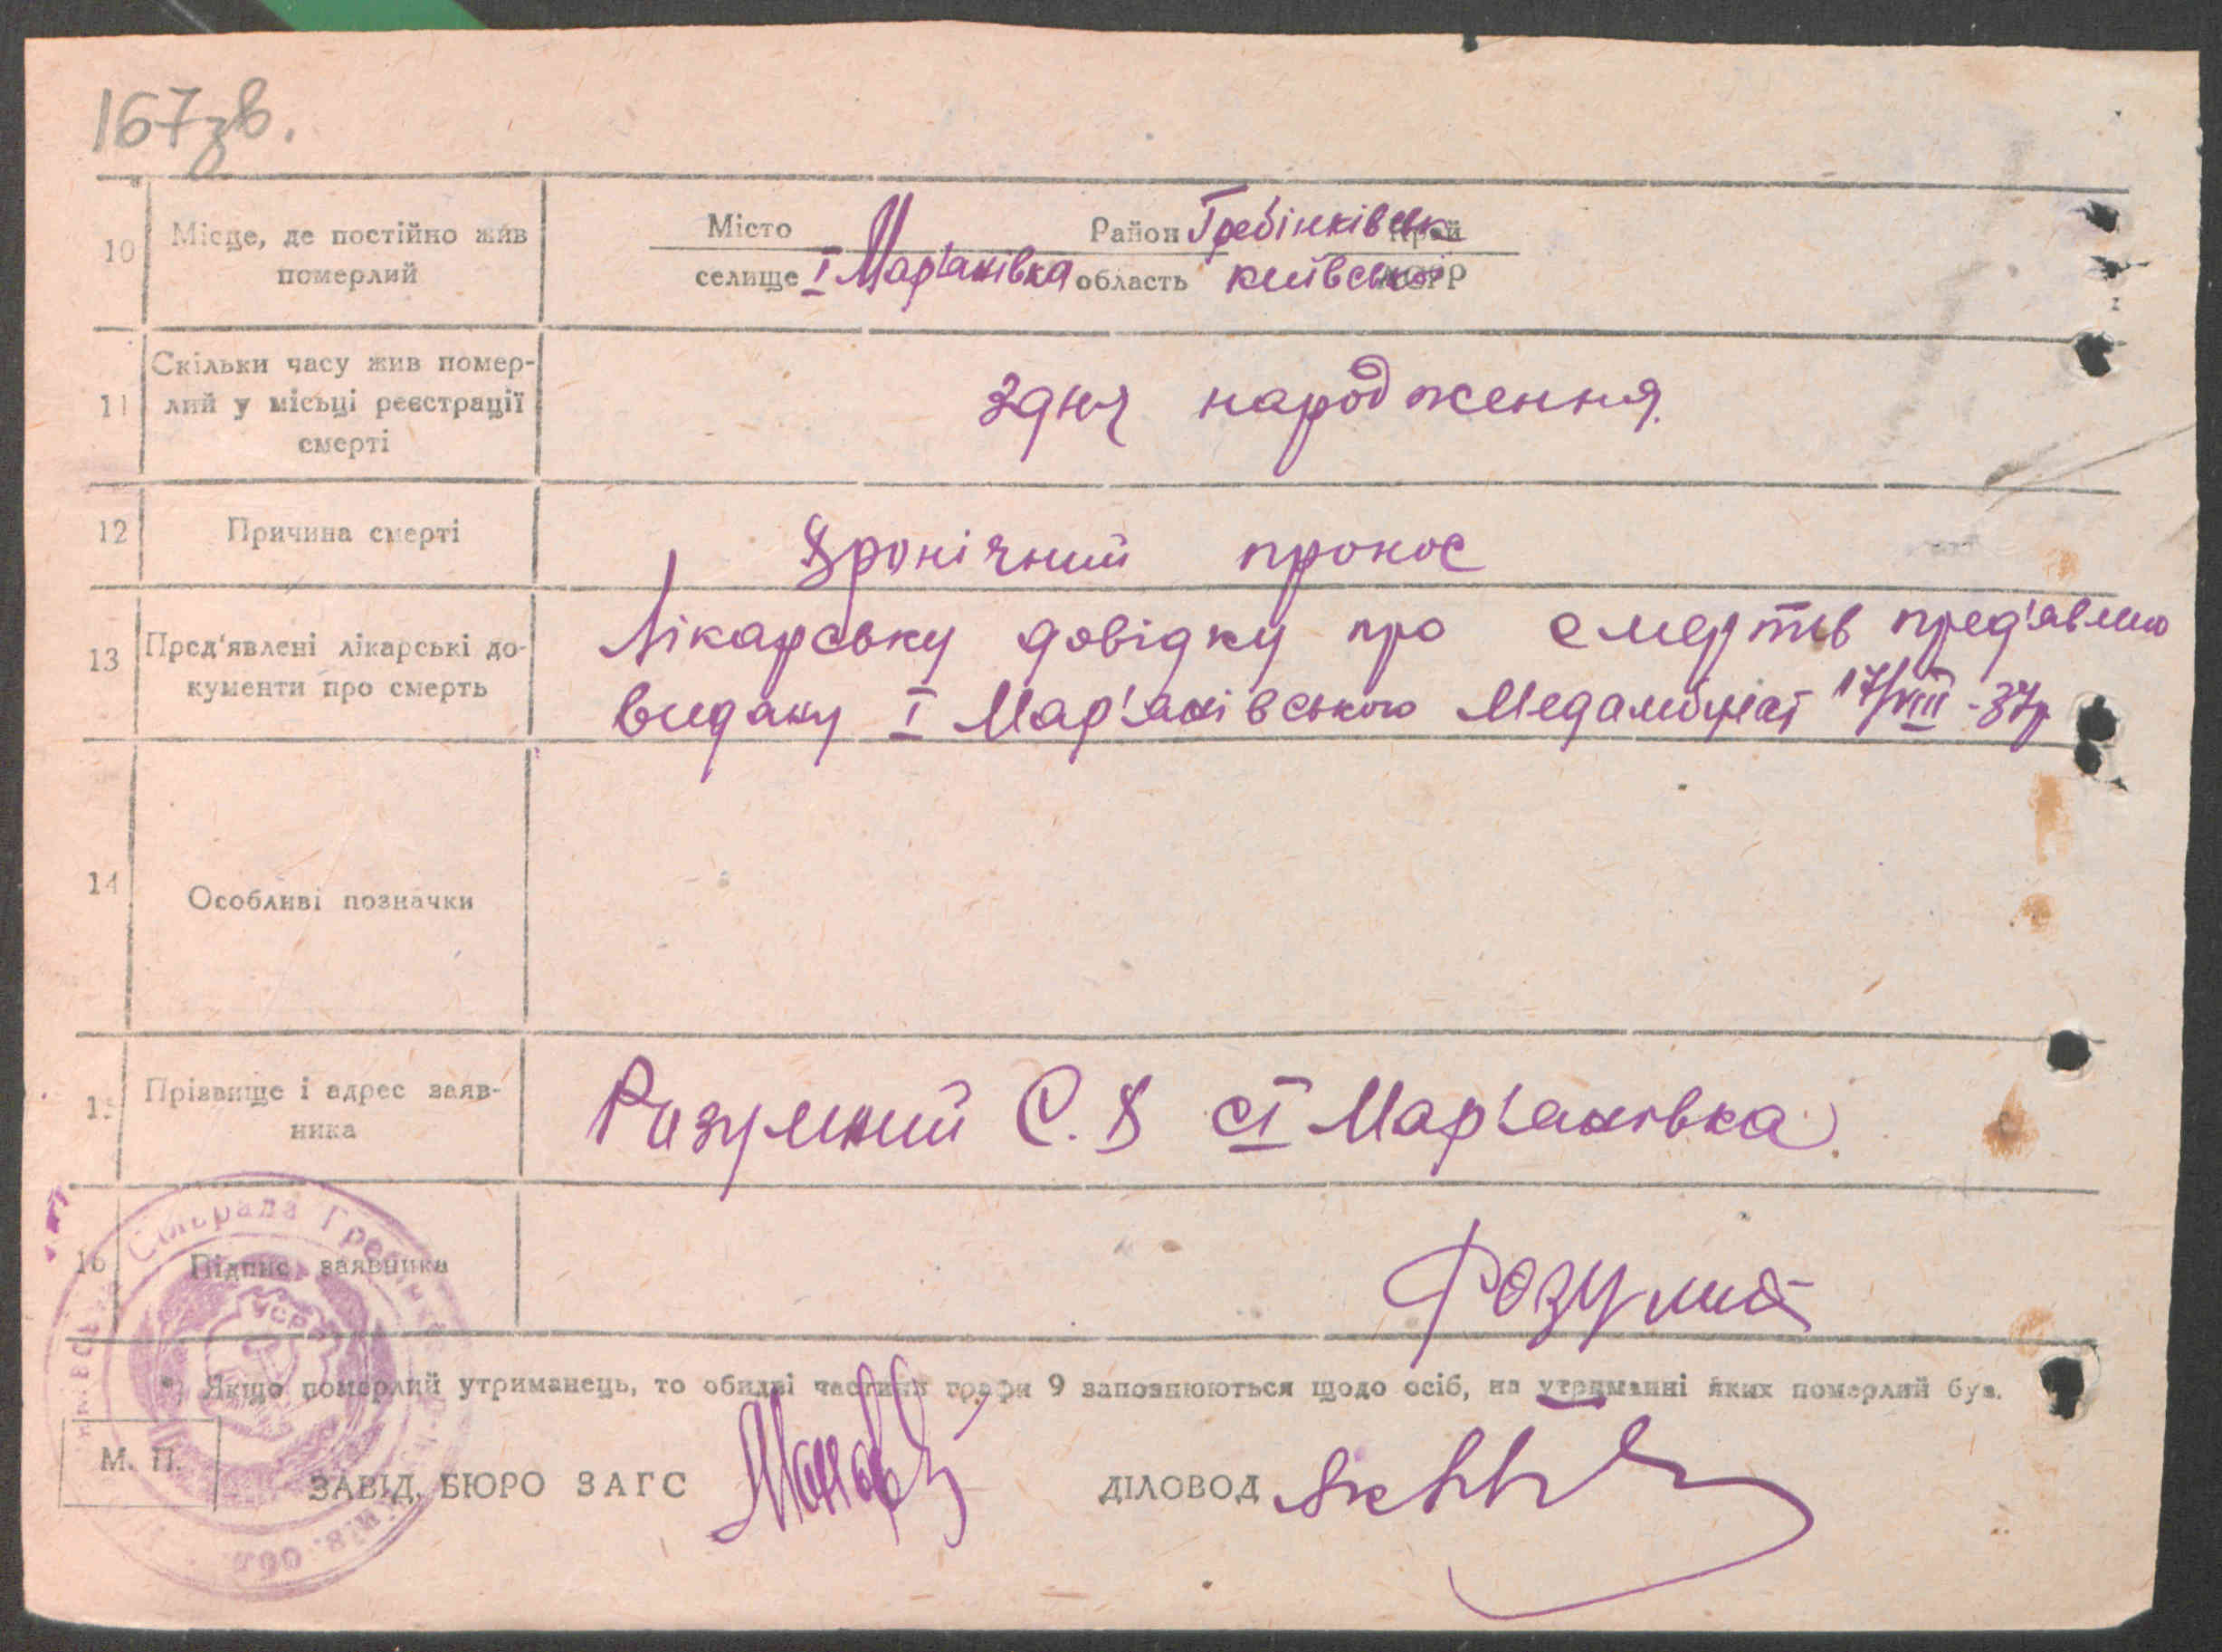 167зв.
10 Місце, де постійно жив померлий
Місто Район Гребінківськ Край
селище І Мар'янівка область київська АСРР
11 Скільки часу жив помер-
лий у місьці реєстрації
смерті
здня народження.
12 Причина смерті
Хронічний пронос
13 Пред'явлені лікарські до-
кументи про смерть
Лікарську довідку про смерть пред'явлено
видану І Мар'янівського Медамбулат 17/VIII-37р
14 Особливі позначки
15 Прізвище і адрес заяв-
ника
Разумний С. Х с І Мар'янівка.
16 Підпис заявника
Розумний
* Якщо померлий утриманець, то обидві частини графи 9 заповнюються щодо осіб, на утриманні яких померлий був.
М. П.
ЗАВІД. БЮРО ЗАГС
ДІЛОВОД
Сільрада Гребінків
УСРР
Київ. обл.